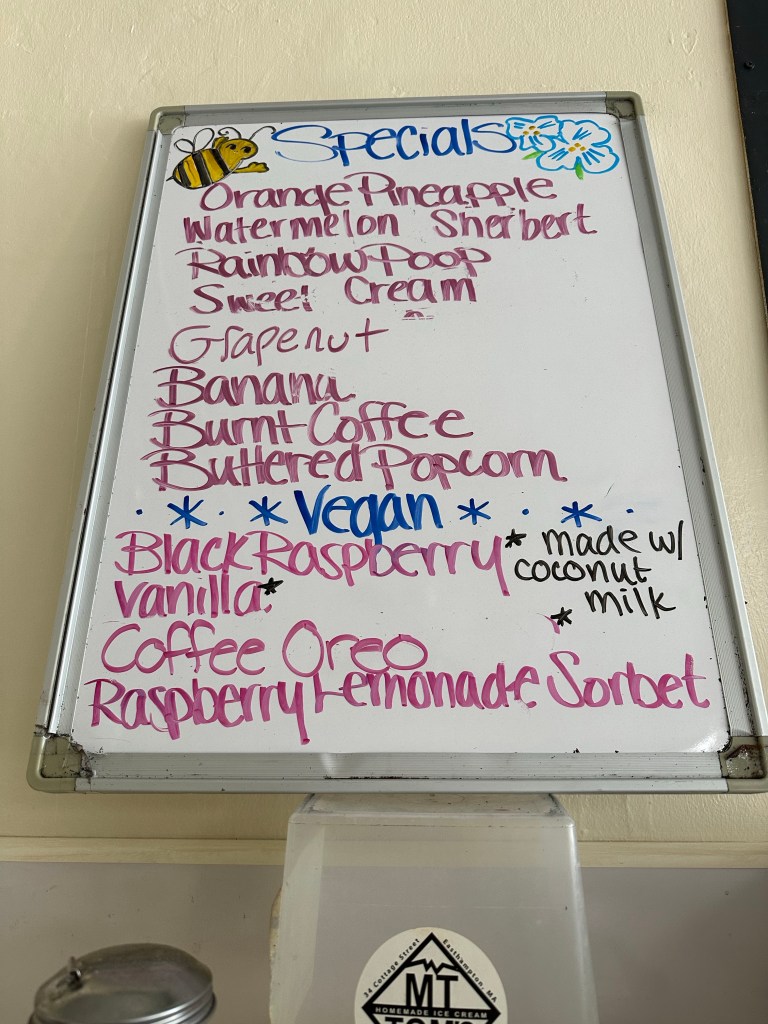 Specials
Orange Pineapple
Watermelon Sherbert
Rainbow Poop
Sweet Cream
Grapenut
Banana
Burnt Coffee
Buttered Popcorn
Vegan
Black Raspberry*
Vanilla*
* made w/
coconut
milk
Coffee Oreo
Raspberry Lemonade Sorbet
34 Cottage Street Easthampton, MA
MT
HOMEMADE ICE CREAM
TOM'S